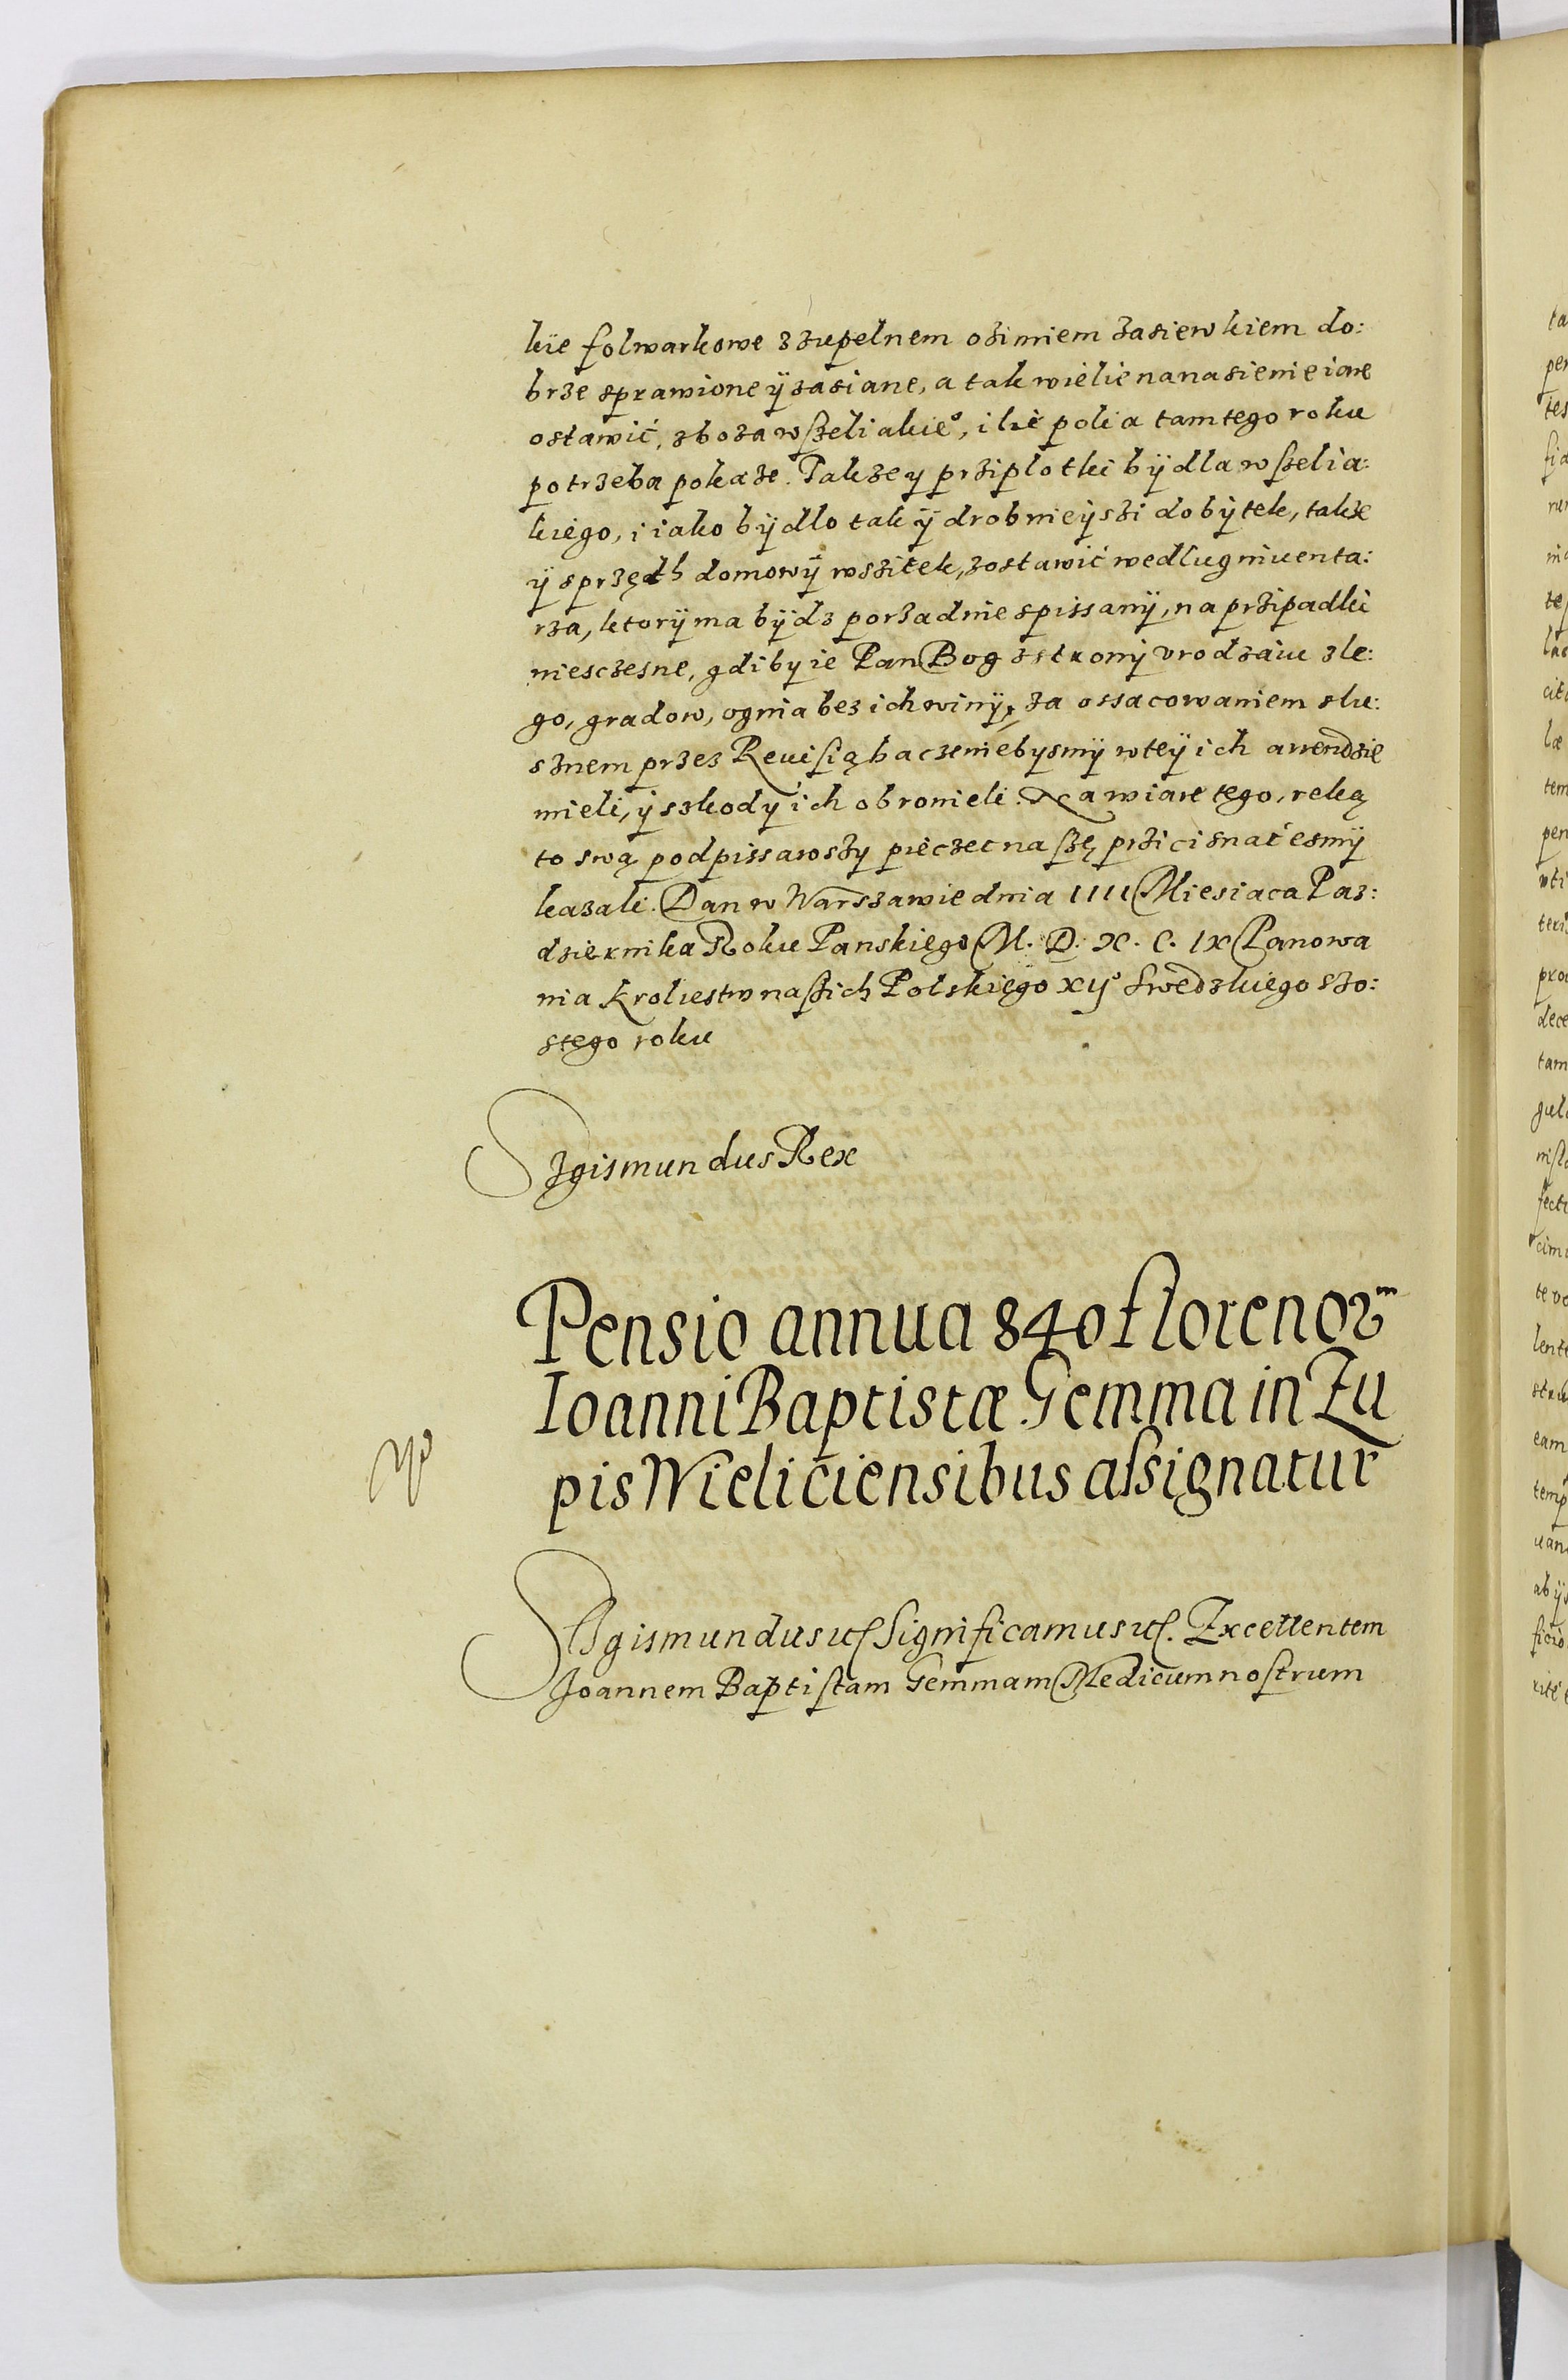 kie folwarkowe z zupelnem ozimiem zasiewkiem do:
brze sprawione ÿ zasiane, a tak wielie na nasienie iare
ostawić, zboza wszeliakie°, ilie polia tamtego roku
potrzeba pokaze. Takze y prziplotki bÿdla wszelia:
kiego, i iako bÿdlo tak ÿ drobnieÿszi dobÿtek, takze
ÿ sprzędth domowÿ wszitek, zostawić wedlug inuenta:
rza, ktorÿ ma bÿdz porzadnie spissanÿ, na przipadki
niesczesne, gdiby ie Pan Bog z stronÿ vrodzaiu zle:
go, gradow, ognia bez ich winÿ, za ossacowaniem slu:
sznem przez Reuisią baczenie bysmÿ w teÿ ich arendzie
mieli, ÿ szkody ich obronieli. Na wiare tego, reką
to swą podpissawszy pieczec naszę przicisnać esmÿ
kazali. Dan w Warszawie dnia IIII Miesiaca Paz:
dziernika Roku Panskiego M. D. X. C. IX Panowa
nia kroliestw naszich Polskiego XIJ° Swedzkiego szo:
stego roku
Sigismundus Rex
Pensio annua 840 florenorm
Ioanni Baptistæ Gemma in Zu
pis Wieliciensibus assignatur
Sigismundus etc Significamus etc. Excellentem
Joannem Baptistam Gemmam Medicum nostrum